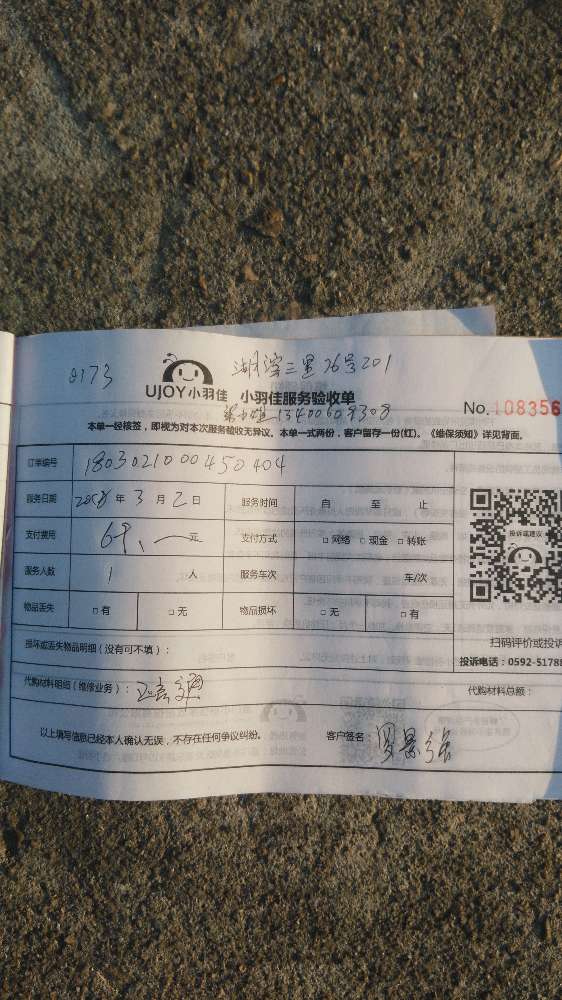 0173
湖滨三里76号201
UJOY小羽佳 小羽佳服务验收单
No. 108356
13400609308
本单一经核签，即视为对本次服务验收无异议。本单一式两份，客户留存一份(红)。《维保须知》详见背面。
订单编号 1803021000450404
服务日期 2018 年 3 月 2 日 服务时间 自 至 止
支付费用 元 支付方式 □ 网络 □ 现金 □ 转账
服务人数 1 人 服务车次 车/次
物品丢失 □ 有 □ 无 物品损坏 □ 无 □ 有
投诉或建议
扫码评价或投诉
投诉电话：0592-5178
损坏或丢失物品明细（没有可不填）：
代购材料明细（维修业务）： 代购材料总额：
以上填写信息已经本人确认无误，不存在任何争议纠纷。 客户签名：